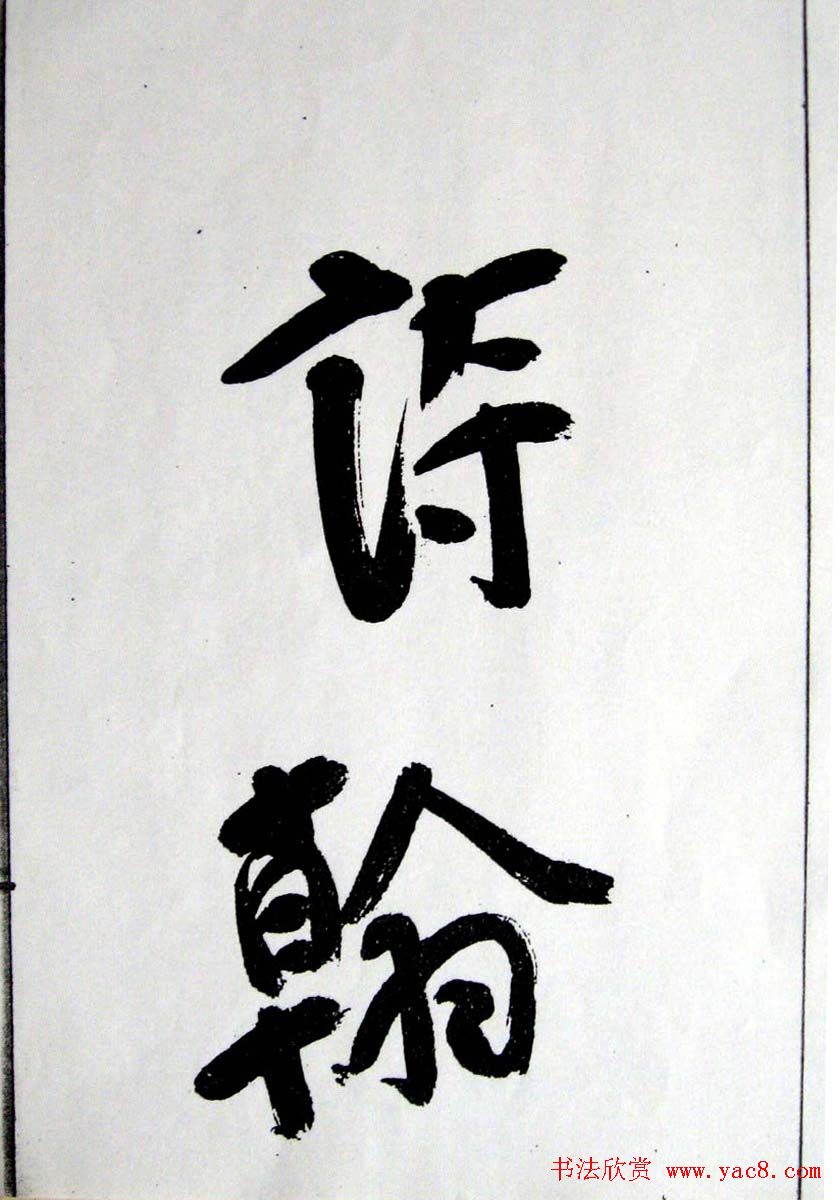 詩
翰
书法欣赏 www.yac8.com